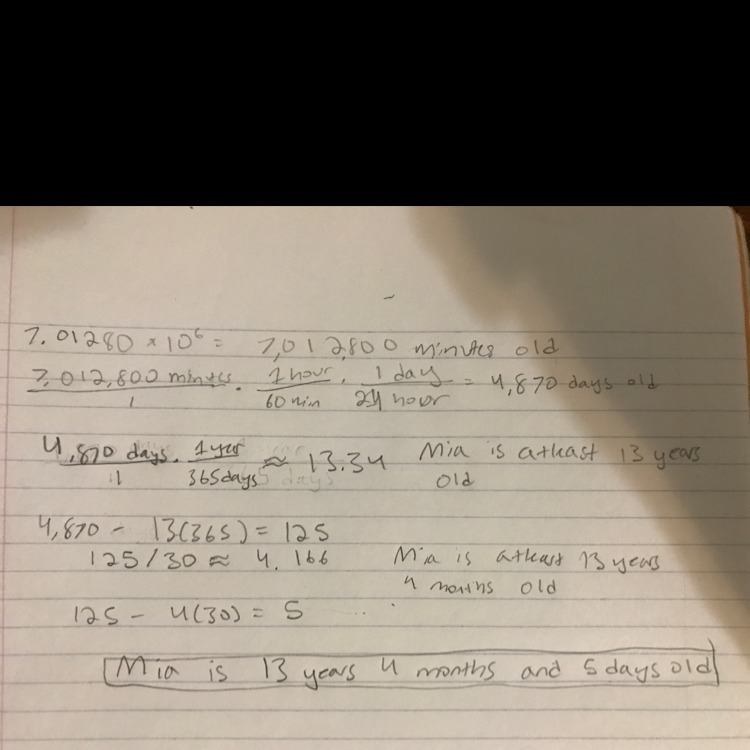 7.01280 × 10⁶ = 7,012,800 minutes old
7,012,800 minutes/1 · 1 hour/60 min · 1 day/24 hour = 4,870 days old
4,870 days/1 · 1 year/365 days ≈ 13.34 Mia is atleast 13 years
old
4,870 - 13(365) = 125
125/30 ≈ 4.166 Mia is atleast 13 years
4 months old
125 - 4(30) = 5
Mia is 13 years 4 months and 5 days old